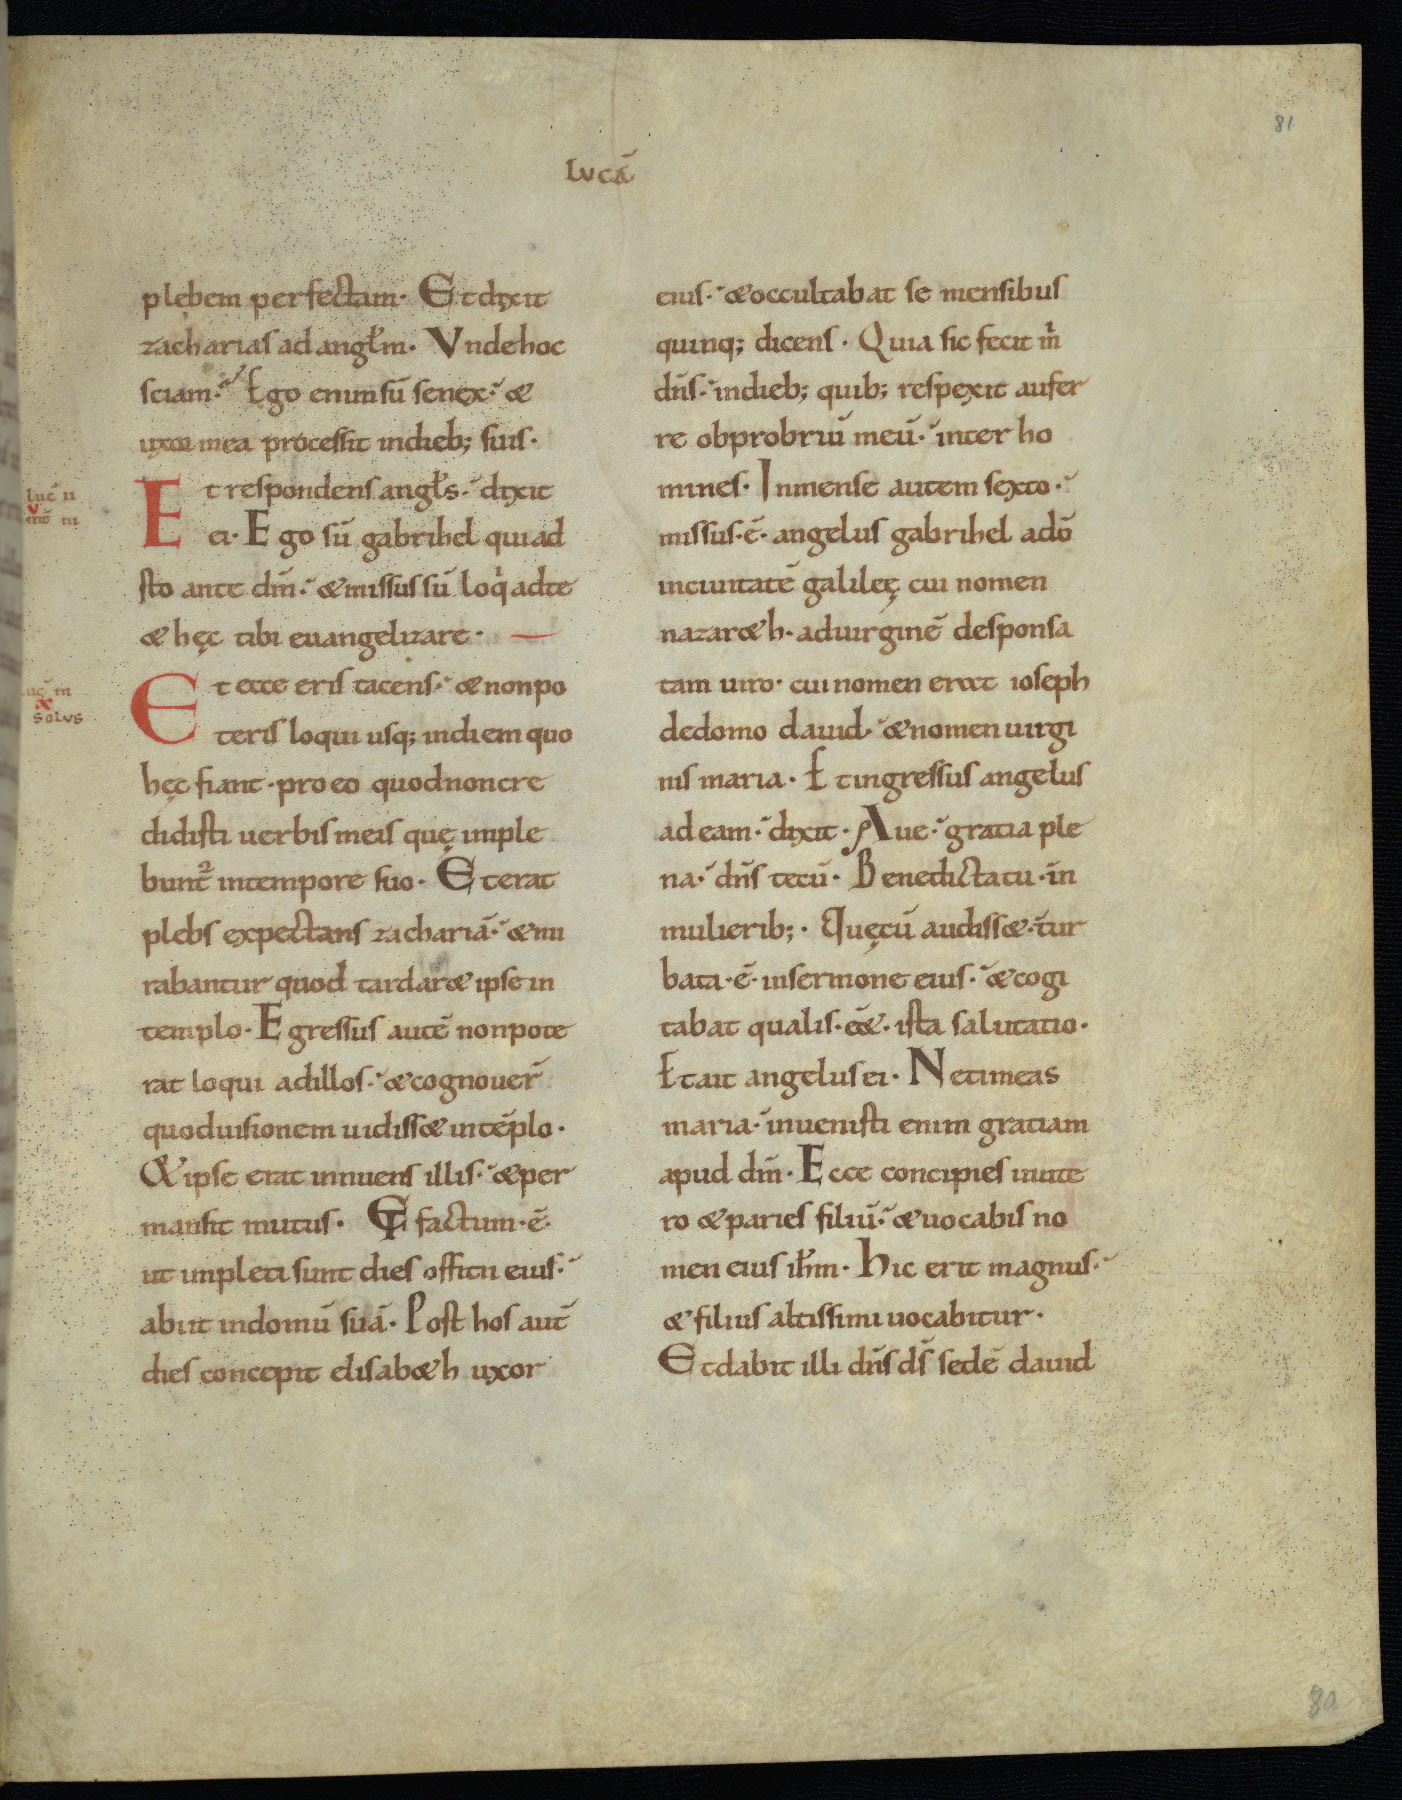 81
lucā
plebem perfectam· Et dixit
zacharias ad angłm· Vnde hoc
sciam· Ego enim sū senex· &
uxor mea processit in dieb; suis·
luc̄ ii
v
mt̄ iii
Et respondens angłs· dixit
ei· Ego sū gabrihel qui ad
sto ante dm̄· & missus sū loq̇ ad te
& hęc tibi euangelizare·
luc̄ iii
x
solus
Et ecce eris tacens· & non po
teris loqui usq; in diem quo
hęc fiant· pro eo quod non cre
didisti uerbis meis quę imple
bunt᷑ in tempore suo· Et erat
plebs expectans zachariā· & mi
rabantur quod tardar& ipse in
templo· Egressus autē non pote
rat loqui ad illos· & cognouer̄
quod uisionem uidiss& in tēplo·
& ipse erat innuens illis· & per
mansit mutus· Et factum· ē·
ut impleti sunt dies officii eius·
abiit in domū suā· Post hos aut̄
dies concepit elisab&h uxor
eius· & occultabat se mensibus
quinq; dicens· Quia sic fecit m̍
dn̄s· in dieb; quib; respexit aufer
re obprobriū meū· inter ho
mines· In mense autem sexto·
missus· ē· angelus gabrihel a dō
in ciuitatē galileę cui nomen
nazar&h· ad uirginē desponsa
tam uiro· cui nomen erat ioseph
de domo dauid· & nomen uirgi
nis maria· Et ingressus angelus
ad eam· dixit· Aue· gratia ple
na· dn̄s tecū· Benedicta tu· in
mulierib;· Quę cū audiss&· tur
bata· ē· in sermone eius· & cogi
tabat qualis· ēē&· ista salutatio·
Et ait angelus ei· Ne timeas
maria· inuenisti enim gratiam
apud dm̄· Ecce concipies in ute
ro & paries filiū· & uocabis no
men eius ihm̄· Hic erit magnus·
& filius altissimi uocabitur·
Et dabit illi dn̄s ds̄ sedē dauid
80